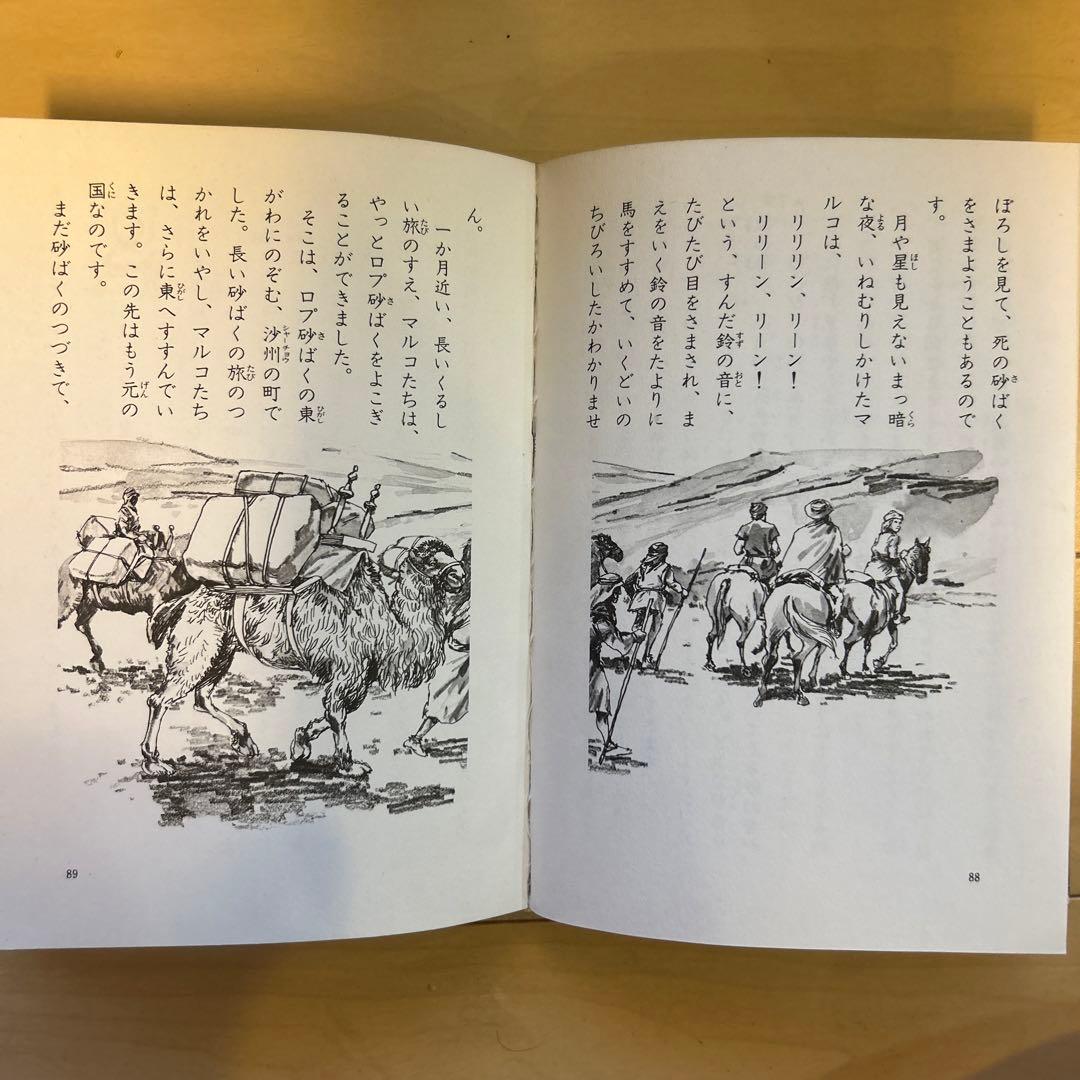 ぼろしを見て、死の砂ばく
をさまようこともあるので
す。
月や星も見えないまっ暗
な夜、いねむりしかけたマ
ルコは、
リリリン、リーン！
リリーン、リーン！
という、すんだ鈴の音に、
たびたび目をさまされ、ま
えをいく鈴の音をたよりに
馬をすすめて、いくどいの
ちびろいしたかわかりませ
88
ん。
一か月近い、長いくるし
い旅のすえ、マルコたちは、
やっとロプ砂ばくをよこぎ
ることができました。
そこは、ロプ砂ばくの東
がわにのぞむ、沙州の町で
した。長い砂ばくの旅のつ
かれをいやし、マルコたち
は、さらに東へすすんでい
きます。この先はもう元の
国なのです。
まだ砂ばくのつづきで、
89